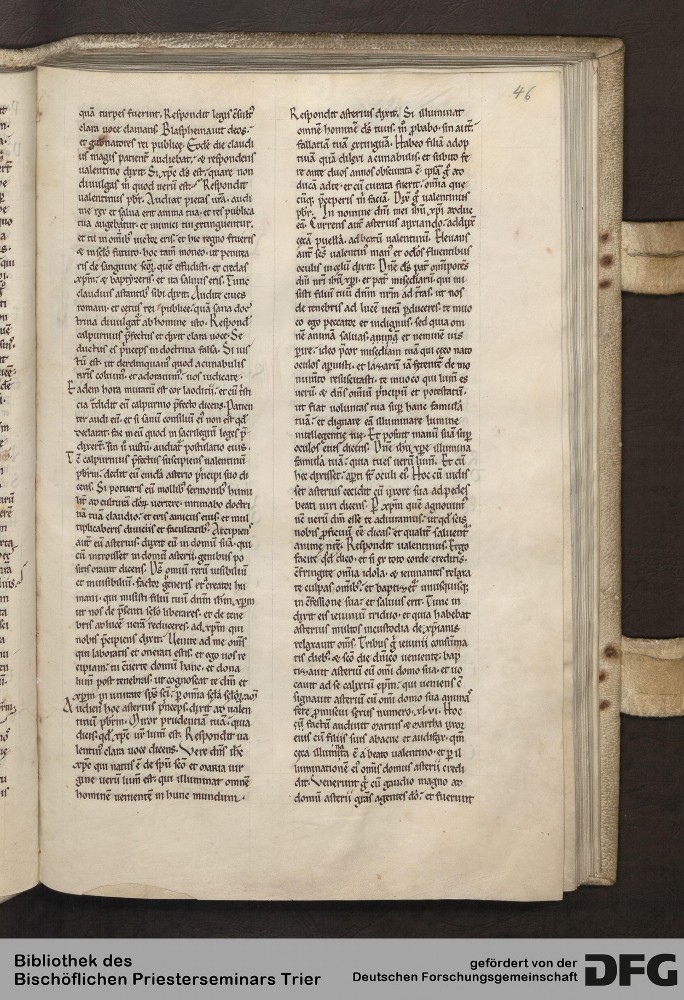 46
quã turpes fuerint. Respondit legis
clara uoce clamans. Blasphemauit deos.
et gubnatores rei publice. Eodē die claudi
us magis patient audiebat, & respondens
ualentino dixit. Si xpc ds est, quare non
diuulgas m quod uerũ est. Respondit
ualentinus pbr. Audiat pietas ura. audi
me rex et salua erit anima tua. et res publica
tua augebitur. et inimici tui extinguentur.
et tu in omib; uictor eris. et hic regno frueris
& in sclo futuro. hoc tam moneo. ut peniteā
ris de sanguine scor que effudisti. et credas
xpm. & baptizeris. et ita saluus eris. Tunc
claudius astantib; sibi dixit. Audite ciues
romani. et cetus rei publice. quã sana doc
trina diuulgat ab homine isto. Respond
calpurnius pfectus et dixit clara uoce. Se
ductus es pnceps in doctrina falsa. Si ius
tũ est. ut derelinquam quod a cunabulis
nris coluim. et adorauim. uos iudicate.
Eadem hora mutatũ est cor claudii. et cũ
cia tdidit eũ calpurnio pfecto dicens. Patien
ter audi eũ. et si sanũ consiliũ ei non est qd
fac in eũ quod in sacrilegiũ leges p
dixert. sin ũ iustũ. audiat postulatio eius.
Tc calpurnius pfectus suscipiens ualentinũ
pbrm. dedit eũ cuidã asterio pncipi suo di
cens. Si potueris eũ mollib; sermonib; humi
liare ad culturã deor uertere. intimabo doctri
nã tuã claudio. et eris amicus eius et mul
tiplicaberis diuiciis et facultatib;. Accipiens
aut eũ asterius. duxit eũ in domũ suã. qui
cũ introisset in domũ asterii. genibus po
sitis orauit dicens. Ds omiũ rerũ uisibiliũ
et inuisibiliũ. factor generis et creator hu
mani. qui misisti filiũ tuũ dnm ihm xpm
ut nos de psenti sclo liberares. et de tene
bris ad lucē uerã reduceres. ad xpm qui
nobis pcipiens dixit. Uenite ad me oms
qui laboratis et onerati estis. et ego uos re
ficiam. tu cuerte domũ hanc. et dona
lum post tenebras. ut cognoscat te dm et
xpm in unitate sps sci. p omia scla sclor. am
Audiens hoc asterius pnceps. dixit ad ualen
tinũ pbrm. Miror prudentiã tuã. quia
dicis qd xpc uer lum est. Respondit ua
lentinus clara uoce dicens. Uere dns ihc
xpc qui natus ē de spu sco et maria uir
gine uerũ lum est. qui illuminat omnē
hominē uenientē in hunc mundum.
Respondit asterius dixit. Si illuminat
omnē hominē ds tuus. m pbabo. sin aut
fallaciã tuã extinguã. Habeo filiã adop
tiuã quã dilexi a cunabulis. et subito fe
re ante duos annos obscurata ē. ipsã g ad
ducã ad te. et cũ curata fuerit. omia que
cũq; pceperis m faciã. Dix g ualentinus
pbr. In nomine dni mei ihu xpi adduc
eã. Currens aut asterius adduxit
cecã puellã ad beatũ ualentinũ. Eleuans
aut scs ualentin man et oculos fluentibus
oculis in celũ dixit. Dne ds pat omipotēs
dni nri ihu xpi. et pat misediarũ. qui mi
sisti filiũ tuũ dnm nrm ad tras. ut nos
de tenebris ad lucē uerã pduceres. te inuo
co ego peccator et indignus. sed quia om
nē animã saluas. et nemine uis
pire. ideo pcor misediam tuã qui ceco nato
oculos apuisti. et lazarũ iã fetentē de mo
numto resuscitasti. te inuoco qui lum es
uerũ. & dns omiũ pncipũ et potestatũ.
ut fiat uoluntas tua supr hanc famulã
tuã. et dignare eã illuminare lumine
intellegentie tue. Et posuit manũ suã sup
oculos eius dicens. Dne ihu xpe illumina
famulã tuã. quia tu es uerũ lum. Et cũ
hec dixisset. apti st oculi ei. Hoc cũ uidis
set asterius cecidit cũ uxore sua ad pedes
beati uiri dicens. P xpm que agnouim
nē uerũ dm esse te adiuramus. ut qd scis
nobis pficuũ ēē dicas. et qualit saluent
anime nre. Respondit ualentinus. Ergo
facite qd dico. et si ex toto corde creditis.
cfringite omia idola. & ieiunantes relaxa
te culpas omib;. et baptizet unusquisq;
in cfessione sua. et saluus erit. Tunc in
dixit eis ieiuniũ triduo. et quia habebat
asterius multos in custodia de xpianis
relaxauit oms. Tribus g ieiunii consũma
tis dieb;. & sco die dnico ueniente. bap
tizauit asteriũ cũ omi domo sua. et uo
cauit ad se calixtũ epm. qui ueniens c
signauit asteriũ cũ omi domo sua animas
fere pmiscui sexus numero. xl.vi. Hoc
cũ factũ audiuit marius & martha uxor
eius cũ filiis suis abacuc et audifax. qm
ceca illuminata ē a beato ualentino. et p il
luminationē ei omis domus asterii credi
dit. Venerunt g cũ gaudio magno ad
domũ asterii grãs agentes do. et fuerunt
Bibliothek des
Bischöflichen Priesterseminars Trier
gefördert von der
Deutschen Forschungsgemeinschaft
DFG